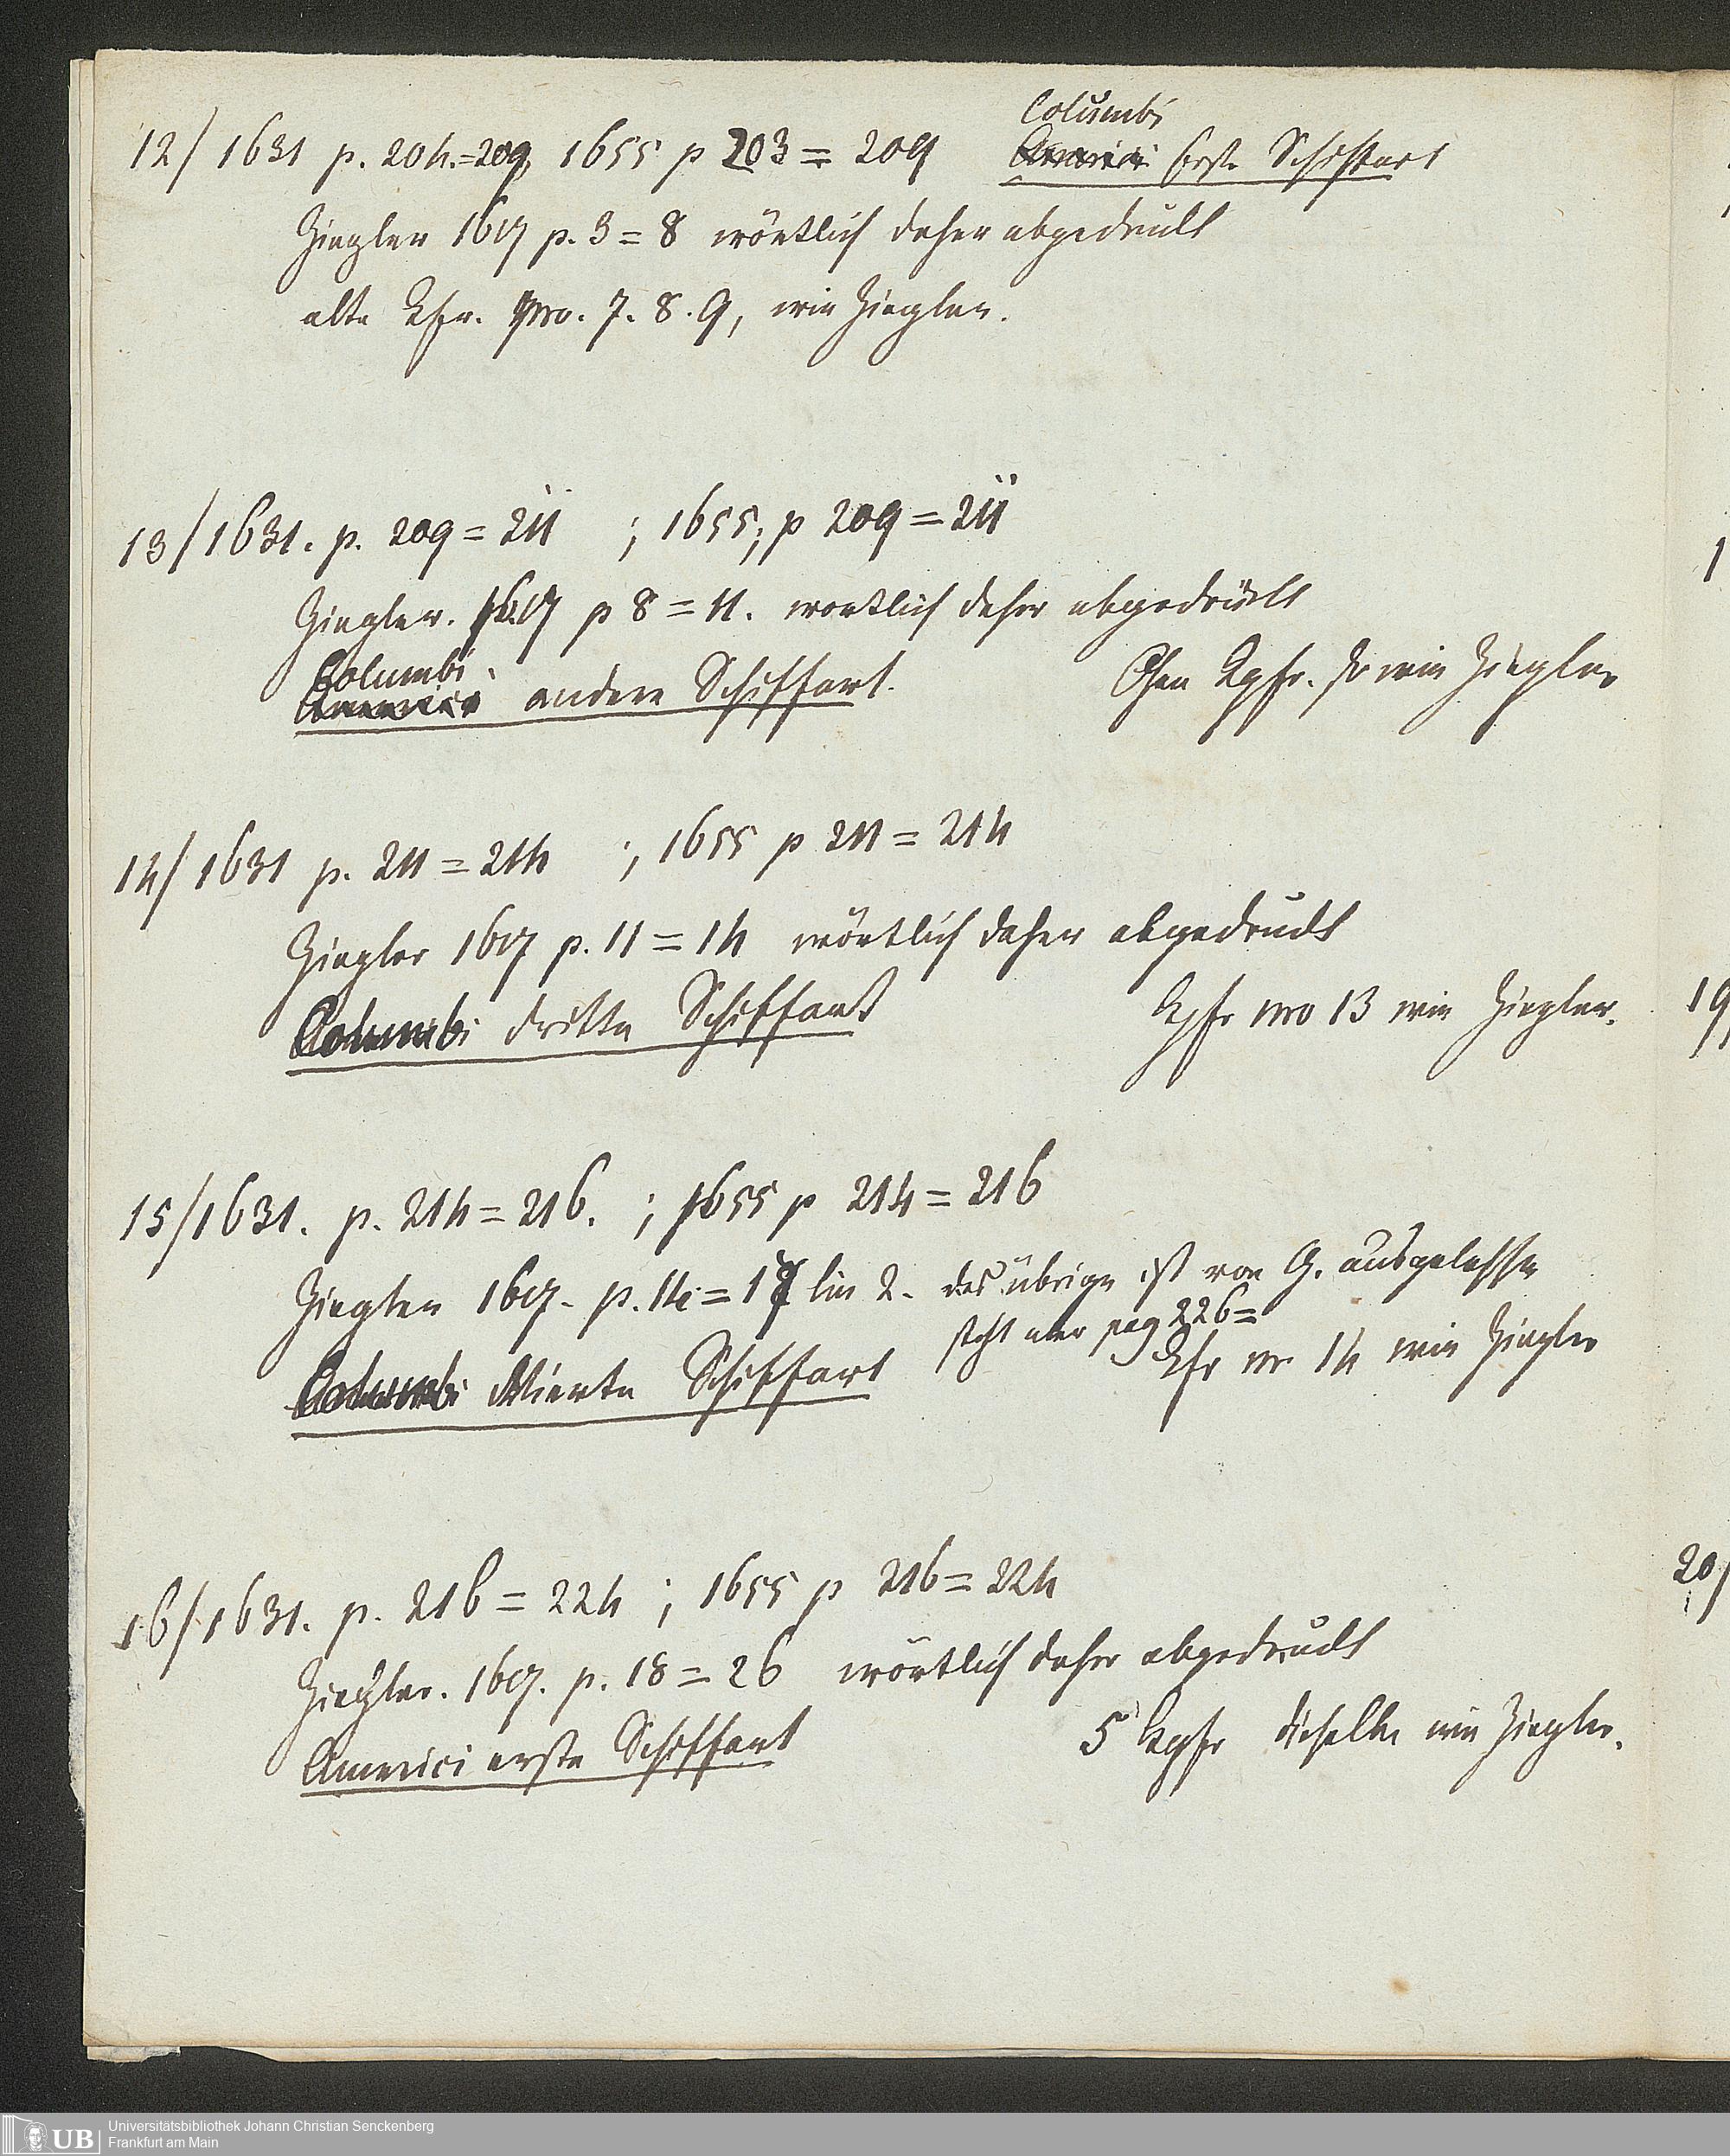 Columbi
12/ 1631 p. 204.=209, 1655 p 203 = 209 Americi Erste Schiffart
Ziegler 1617 p. 3 = 8 wörtlich daher abgedruckt
alte Kpfr. nro. 7. 8. 9, wie Ziegler.
13/ 1631. p. 209 = 211 ; 1655; p 209 = 211
Ziegler. 1617 p 8 = 11. wortlich daher abgedruckt
Columbi
Americi andere Schiffart. Ohne Kpfr. so wie Ziegler
14/ 1631 p. 211 = 214 ; 1655 p 211 = 214
Ziegler 1617 p. 11 = 14 wörtlich daher abgedruckt
Columbi dritte Schiffart Kpfr nro 13 wie Ziegler.
15/ 1631. p. 214 = 216. ; 1655 p 214 = 216
Ziegler 1617. p. 14 = 17 lin 2. das übrige ist von G. ausgelassen
steht aber pag 226=
Columbi Vierte Schiffart Kpfr nr 14 wie Ziegler
16/ 1631. p. 216 = 224 ; 1655 p 216 = 224
Ziegler. 1617. p. 18 = 26 wörtlich daher abgedruckt
Americi erste Schiffart 5 Kpfr dieselbe wie Ziegler.
19
20/
Universitätsbibliothek Johann Christian Senckenberg
Frankfurt am Main
UB